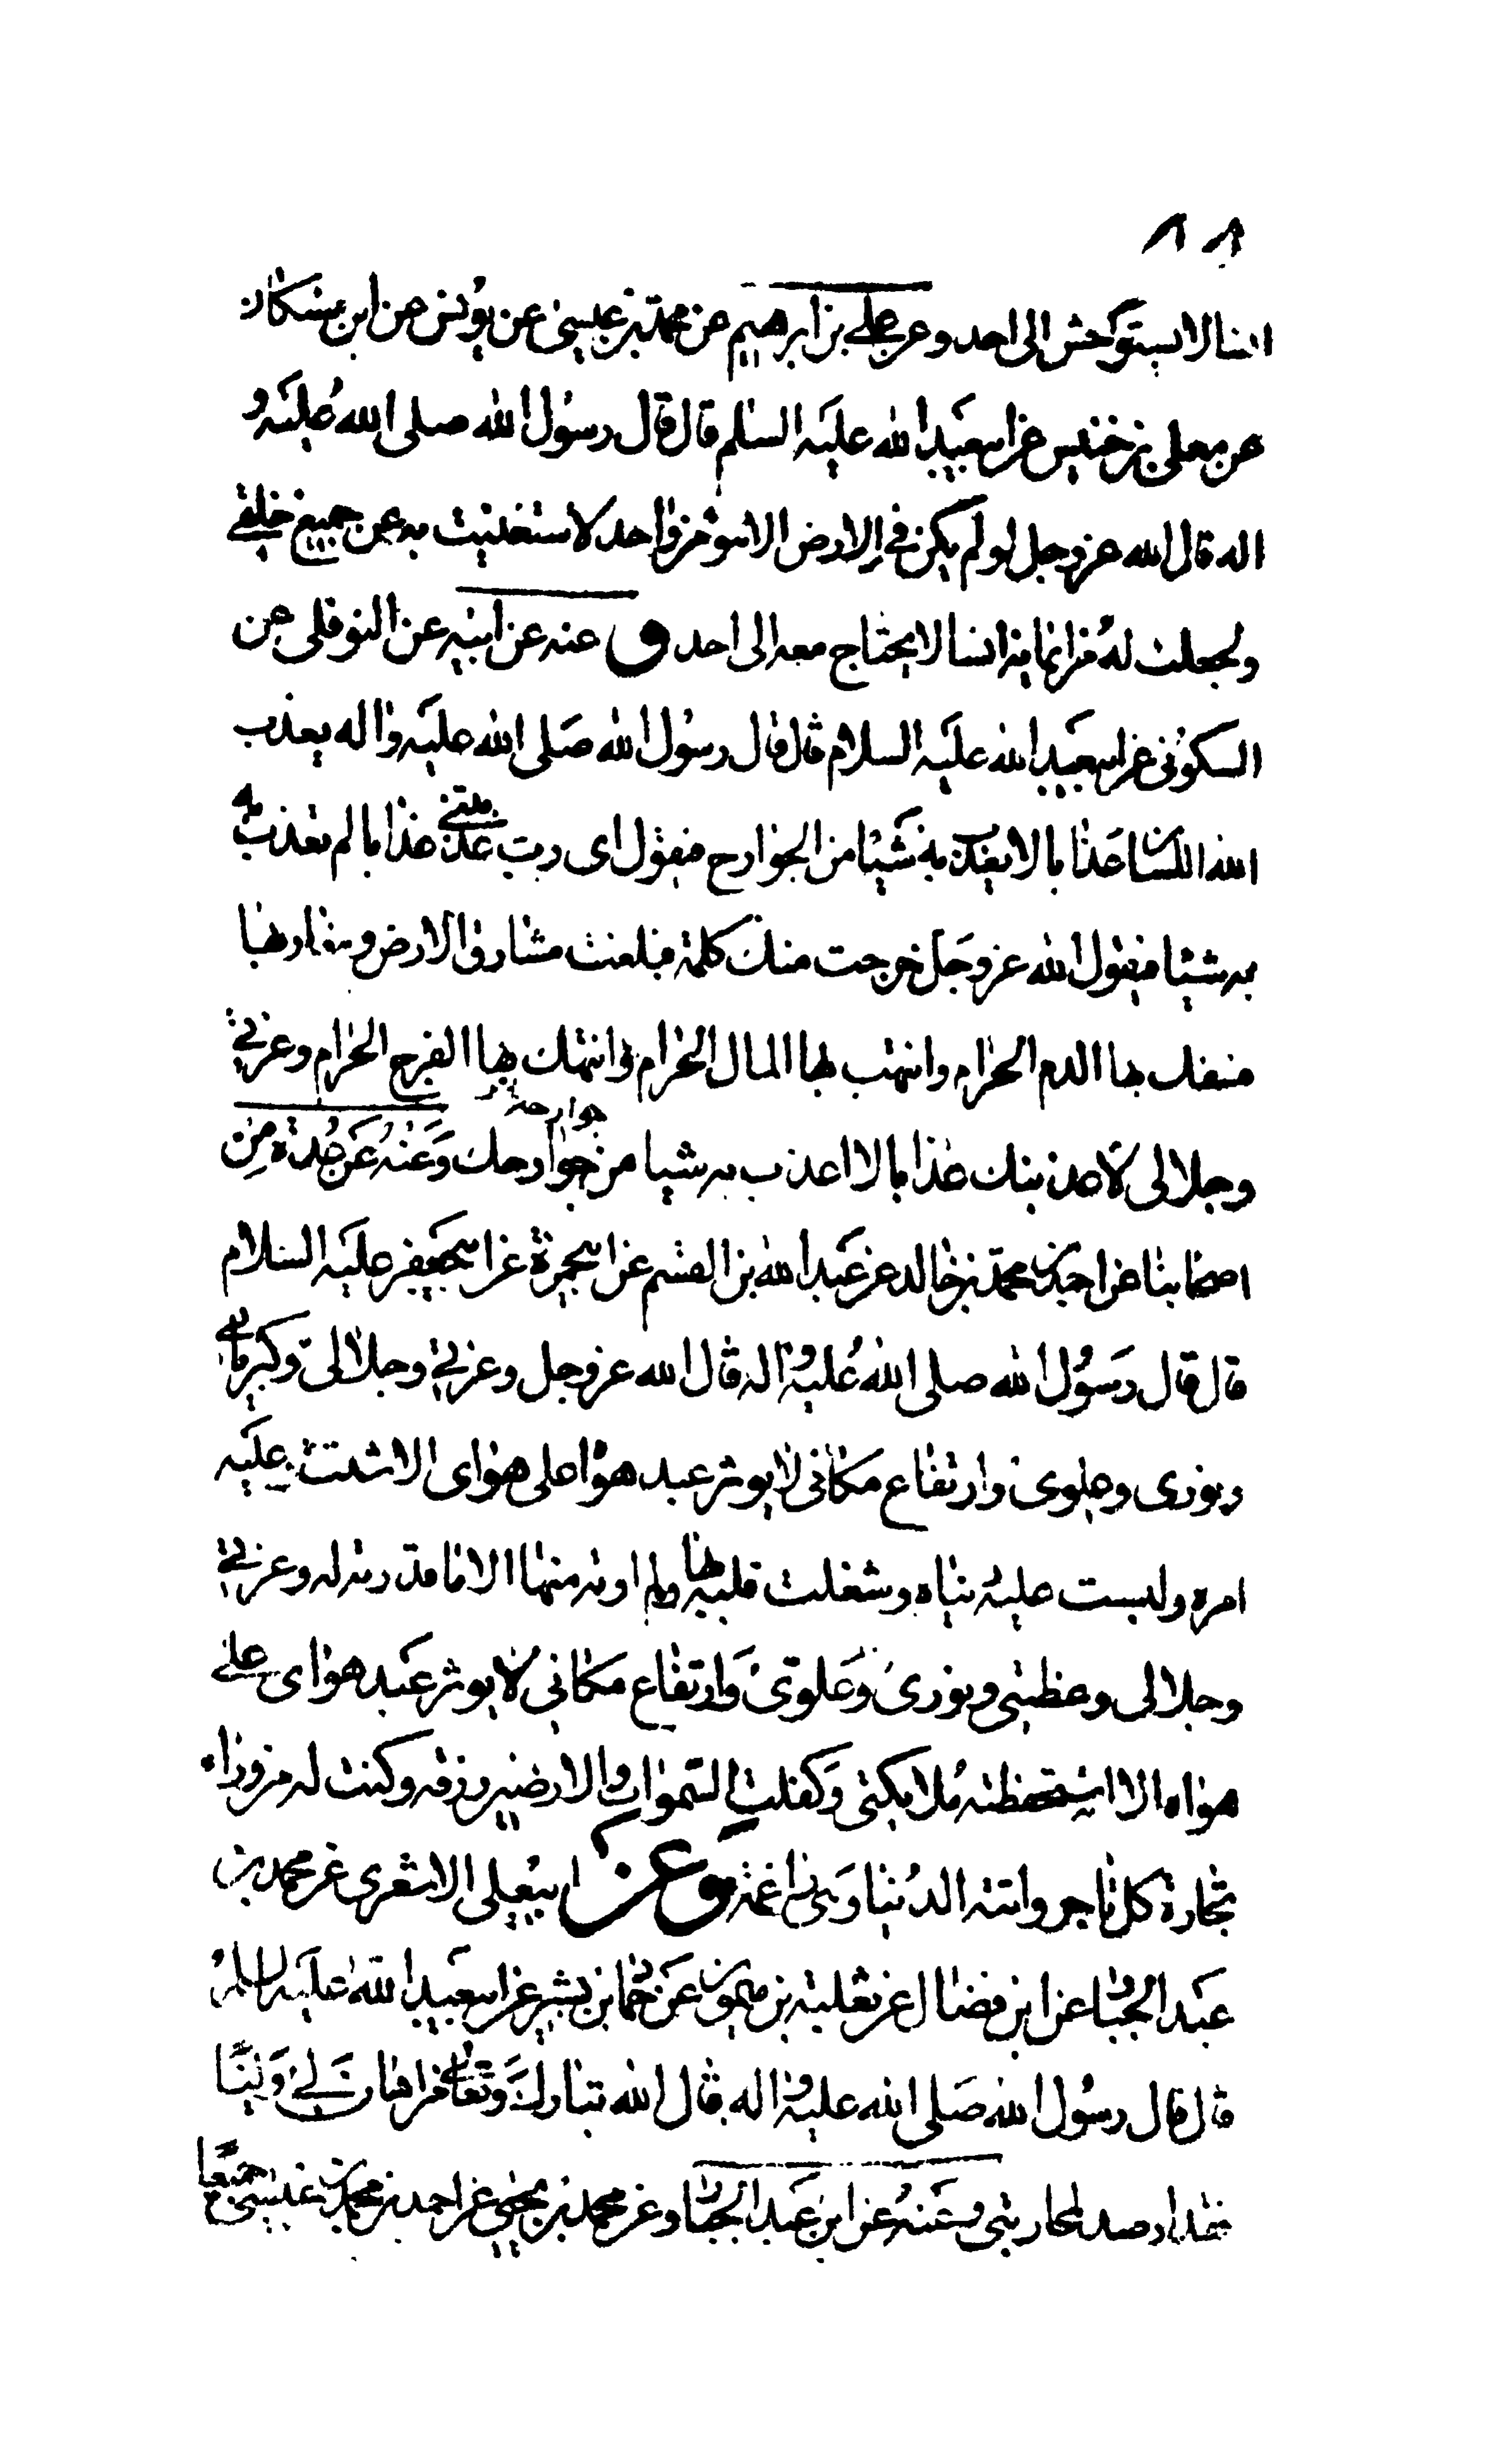 ٨٨
انسا لا يستوحش الى احد وعن علي بن ابرهيم عن محمد بن عيسى عن يونس عن ابن مسكان
عن معلى بن خنيس عن ابيعبد الله عليه السلم قال قال رسول الله صلى الله عليه و
اله قال الله عز وجل لو لم يكن في الارض الا مؤمن واحد لاستغنيت به عن جميع خلقي
ولجعلت له من ايمانه انسا لا يحتاج معه الى احد و عنه عن ابيه عن النوفلي عن
السكوني عن ابيعبد الله عليه السلام قال قال رسول الله صلى الله عليه واله يعذب
الله اللسان عذابا لا يعذب به شيئا من الجوارح فيقول اى رب عذبتني عذابا لم تعذب به
به شيئا فيقول الله عز وجل خرجت منك كلمة فبلغت مشارق الارض ومغاربها
فسفك بها الدم الحرام وانتهب بها المال الحرام وانتهك بها الفرج الحرام وعزتي
جوارحه
وجلالى لاعذبنك عذابا لا اعذب به شيئا من جوارحك وعنه عن عدة من
اصحابنا عن احمد بن محمد بن خالد عن عبد الله بن القسم عن ابيحمزة عن ابيجعفر عليه السلام
قال قال رسول الله صلى الله عليه واله قال الله عز وجل وعزتي وجلالى وكبريائي
ونورى وعلوى وارتفاع مكاني لا يوثر عبد هواه على هواى الا شتت عليه
امره ولبست عليه دنياه وشغلت قلبه بها ولم اوته منها الا ما قدرت له وعزتي
وجلالى وعظمتى ونورى وعلوى وارتفاع مكاني لا يوثر عبد هواى على
هواه الا استحفظته ملائكتى وكفلت السموات والارضين رزقه وكنت له من وراء
تجارة كل تاجر واتته الدنيا وهى راغمة وعن ابيعلي الاشعرى عن محمد بن
عبد الجبار عن ابن فضال عن ثعلبة بن ميمون عن حماد بن بشير عن ابيعبد الله عليه السلم
قال قال رسول الله صلى الله عليه واله قال الله تبارك وتعالى من اهان لي وليا
فقد ارصد لمحاربتى وعنه عن ابن عبد الجبار وعن محمد بن يحيى عن احمد بن محمد بن عيسى جميعا